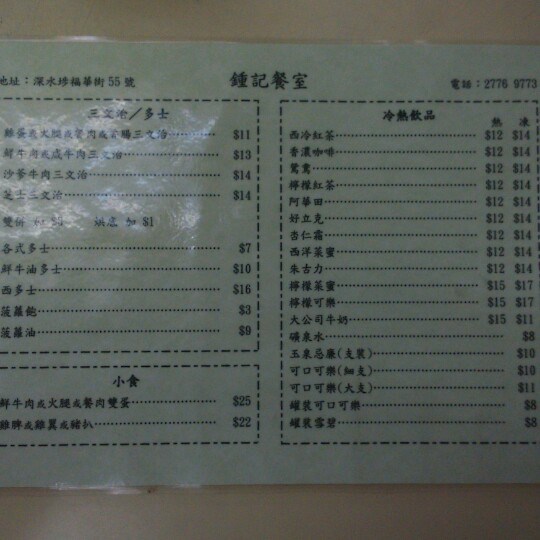 地址：深水埗福華街55號
鍾記餐室
電話：2776 9773
三文治／多士
雞蛋或火腿或餐肉或香腸三文治 $11
鮮牛肉或咸牛肉三文治 $13
沙爹牛肉三文治 $14
芝士三文治 $14
雙併 加 烘底 加 $1
各式多士 $7
鮮牛油多士 $10
西多士 $16
菠蘿飽 $3
菠蘿油 $9
小食
鮮牛肉或火腿或餐肉雙蛋 $25
雞脾或雞翼或豬扒 $22
冷熱飲品
熱 凍
西冷紅茶 $12 $14
香濃咖啡 $12 $14
鴛鴦 $12 $14
檸檬紅茶 $12 $14
阿華田 $12 $14
好立克 $12 $14
杏仁霜 $12 $14
西洋菜蜜 $12 $14
朱古力 $12 $14
檸檬菜蜜 $15 $17
檸檬可樂 $15 $17
大公司牛奶 $15 $11
礦泉水 $8
玉泉忌廉(支裝) $10
可口可樂(細支) $10
可口可樂(大支) $11
罐裝可口可樂 $8
罐裝雪碧 $8